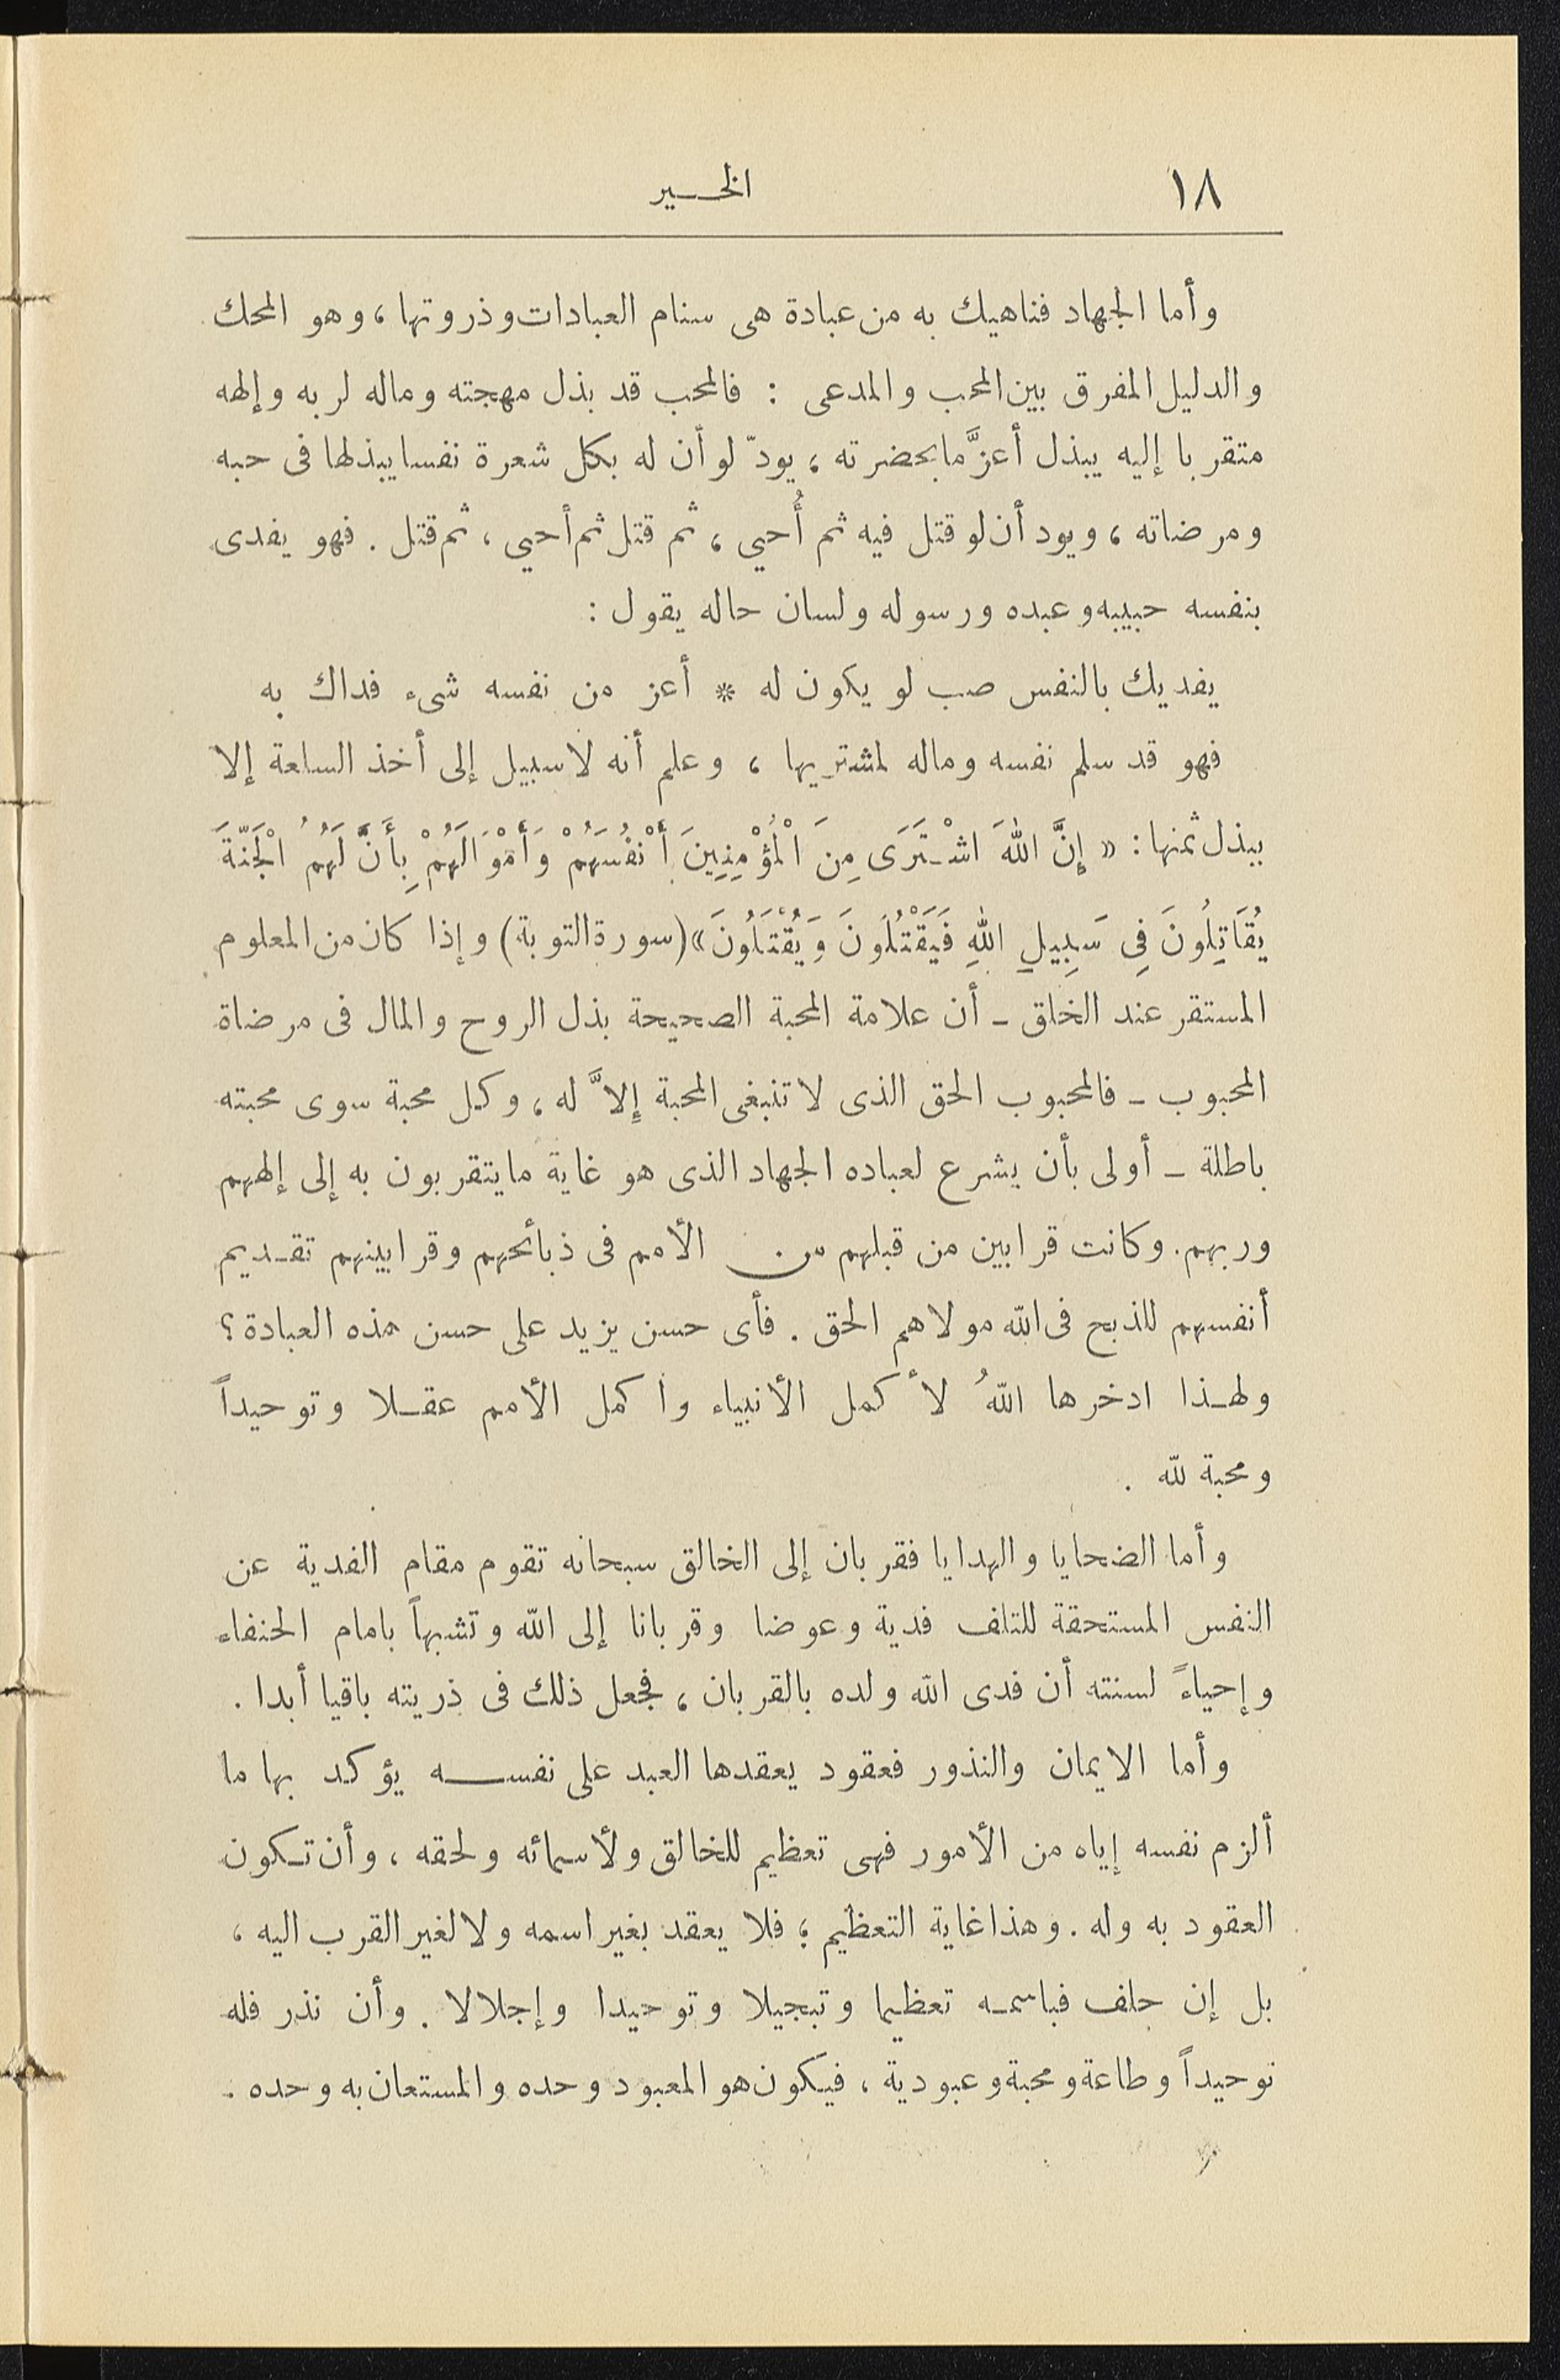 ١٨ الخـير
وأما الجهاد فناهيك به من عبادة هى سنام العبادات وذروتها، وهو المحك
والدليل المفرق بين المحب والمدعى : فالمحب قد بذل مهجته وماله لربه وإلهه
متقربا إليه يبذل أعزَّ ما بحضرته ، يودّ لو أن له بكل شعرة نفسا يبذلها فى حبه
ومرضاته ، ويود أن لو قتل فيه ثم أُحيي ، ثم قتل ثم أحيي ، ثم قتل . فهو يفدى
بنفسه حبيبه وعبده ورسوله ولسان حاله يقول :
يفديك بالنفس صب لو يكون له * أعز من نفسه شىء فداك به
فهو قد سلم نفسه وماله لمشتريها ، وعلم أنه لا سبيل إلى أخذ السلعة إلا
ببذل ثمنها : « إِنَّ اللهَ اشْـتَرَى مِنَ الْمُؤْمِنِينَ أَنْفُسَهُمْ وَأَمْوَالَهُمْ بِأَنَّ لَهُمُ الْجَنَّةَ
يُقَاتِلُونَ فِى سَبِيلِ اللهِ فَيَقْتُلُونَ وَيُقْتَلُونَ » (سورة التوبة) وإذا كان من المعلوم
المستقر عند الخلق ـ أن علامة المحبة الصحيحة بذل الروح والمال فى مرضاة
المحبوب ـ فالمحبوب الحق الذى لا تنبغى المحبة إِلاَّ له ، وكل محبة سوى محبته
باطلة ـ أولى بأن يشرع لعباده الجهاد الذى هو غاية ما يتقربون به إلى إلههم
وربهم. وكانت قرابين من قبلهم من الأمم فى ذبائحهم وقرابينهم تقـديم
أنفسهم للذبح فى الله مولاهم الحق . فأى حسن يزيد على حسن هذه العبادة ؟
ولهـذا ادخرها اللهُ لأكمل الأنبياء وا كمل الأمم عقـلا وتوحيداً
ومحبة لله .
وأما الضحايا والهدايا فقربان إلى الخالق سبحانه تقوم مقام الفدية عن
النفس المستحقة للتلف فدية وعوضا وقربانا إلى الله وتشبهاً بامام الحنفاء
وإحياءً لسنته أن فدى الله ولده بالقربان ، فجعل ذلك فى ذريته باقيا أبدا .
وأما الايمان والنذور فعقود يعقدها العبد على نفســـه يؤكد بها ما
ألزم نفسه إياه من الأمور فهى تعظيم للخالق ولأسمائه ولحقه ، وأن تـكون
العقود به وله . وهذا غاية التعظيم ؛ فلا يعقد بغير اسمه ولا لغير القرب اليه ،
بل إن حلف فباسمـه تعظيما وتبجيلا وتوحيدا وإجلالا . وأن نذر فله
توحيداً وطاعة ومحبة وعبودية ، فيكون هو المعبود وحده والمستعان به وحده .